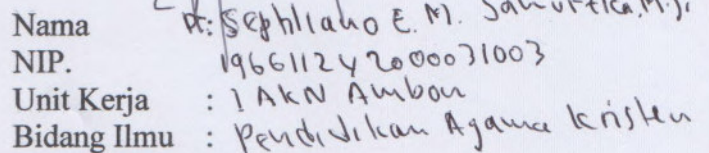 Nama Dr. Sephliaho E. M. Sahurtika, M.Si
NIP. 196611242000031003
Unit Kerja : IAKN Ambon
Bidang Ilmu : Pendidikan Agama Kristen